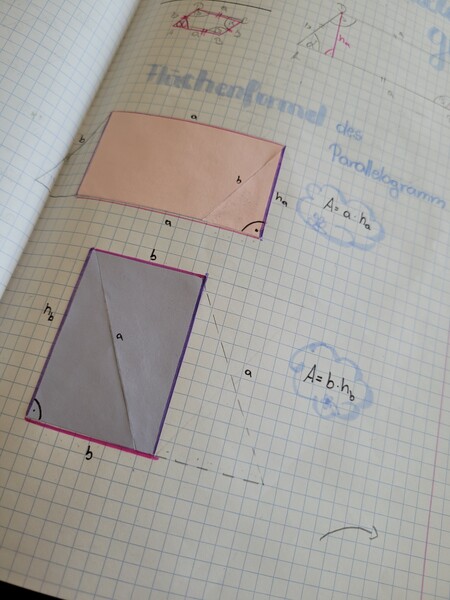 Flächenformel des
Parallelogramm
a
b
b
ha
a
A = a · ha
b
hb
a
a
A = b · hb
b